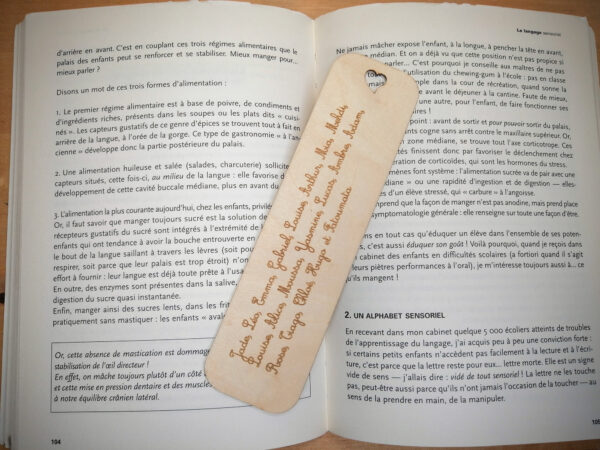 d'arrière en avant. C'est en couplant ces trois régimes alimentaires que le
palais des enfants peut se renforcer et se stabiliser. Mieux manger pour...
mieux parler ?
Disons un mot de ces trois formes d'alimentation :
1. Le premier régime alimentaire est à base de poivre, de condiments et
d'ingrédients riches, présents dans les soupes ou les plats dits « cuisi-
nés ». Les capteurs gustatifs de ce genre d'épices se trouvent tout à fait en
arrière de la langue, à l'orée de la gorge. Ce type de gastronomie « à l'an-
cienne » développe donc la partie postérieure du palais.
2. Une alimentation huileuse et salée (salades, charcuterie) sollicite
capteurs situés, cette fois-ci, au milieu de la langue : elle favorise
développement de cette cavité buccale médiane, plus en avant du
3. L'alimentation la plus courante aujourd'hui, chez les enfants, privilé
Or, il faut savoir que manger toujours sucré est la solution de
récepteurs gustatifs du sucré sont intégrés à l'extrémité de
enfants qui ont tendance à avoir la bouche entrouverte en
le bout de la langue saillant à travers les lèvres (soit pour
respirer, soit parce que leur palais est trop étroit) n'ont
effort à fournir : leur langue est déjà toute prête à l'us
En outre, des enzymes sont présentes dans la salive,
digestion du sucre quasi instantanée.
Enfin, manger ainsi des sucres lents, dans les frit
pratiquement sans mastiquer : les enfants « avale
Or, cette absence de mastication est dommag
stabilisation de l'œil directeur !
En effet, on mâche toujours plutôt d'un côté
et cette mise en pression dentaire et des muscles
à notre équilibre crânien latéral.
104
Jade, Léo, Emma, Gabriel, Louise, Arthur, Mia, Mehdi,
Louise, Alice, Moussa, Yasmine, Lucas, Ambre, Adam,
Rose, Tiago, Chloé, Hugo et Fatoumata
Le langage sensoriel
Ne jamais mâcher expose l'enfant, à la langue, à pencher la tête en avant,
médian. Et on a déjà vu que cette position n'est pas propice si
parler... C'est pourquoi je conseille aux maîtres de ne pas
l'utilisation du chewing-gum à l'école : pas en classe
dans la cour de récréation, quand sonne la
avant le déjeuner à la cantine. Faute de mieux,
une autre, pour l'enfant, de faire fonctionner ses
point : avant de sortir et pour pouvoir sortir du palais,
cogne sans arrêt contre le maxillaire supérieur. Or,
zone médiane, se trouve tout l'axe corticotrope. Ces
finissent donc par favoriser le déclenchement chez
de corticoïdes, qui sont les hormones du stress.
font système : l'alimentation sucrée va de pair avec une
» ou une rapidité d'ingestion et de digestion — elles-
d'un élève stressé, qui « carbure » à l'angoisse.
que la façon de manger n'est pas anodine, mais prend place
symptomatologie générale : elle renseigne sur toute une façon d'être.
en tout cas qu'éduquer un élève dans l'ensemble de ses poten-
c'est aussi éduquer son goût ! Voilà pourquoi, quand je reçois dans
cabinet des enfants en difficultés scolaires (a fortiori quand il s'agit
leurs piètres performances à l'oral), je m'intéresse toujours aussi à... ce
qu'ils mangent !
2. UN ALPHABET SENSORIEL
En recevant dans mon cabinet quelque 5 000 écoliers atteints de troubles
de l'apprentissage du langage, j'ai acquis peu à peu une conviction forte :
si certains petits enfants n'accèdent pas facilement à la lecture et à l'écri-
ture, c'est parce que la lettre reste pour eux... lettre morte. Elle est un signe
vide de sens — j'allais dire : vidé de tout sensoriel ! La lettre ne les touche
pas, peut-être aussi parce qu'ils n'ont jamais l'occasion de la toucher — au
sens de la prendre en main, de la manipuler.
105